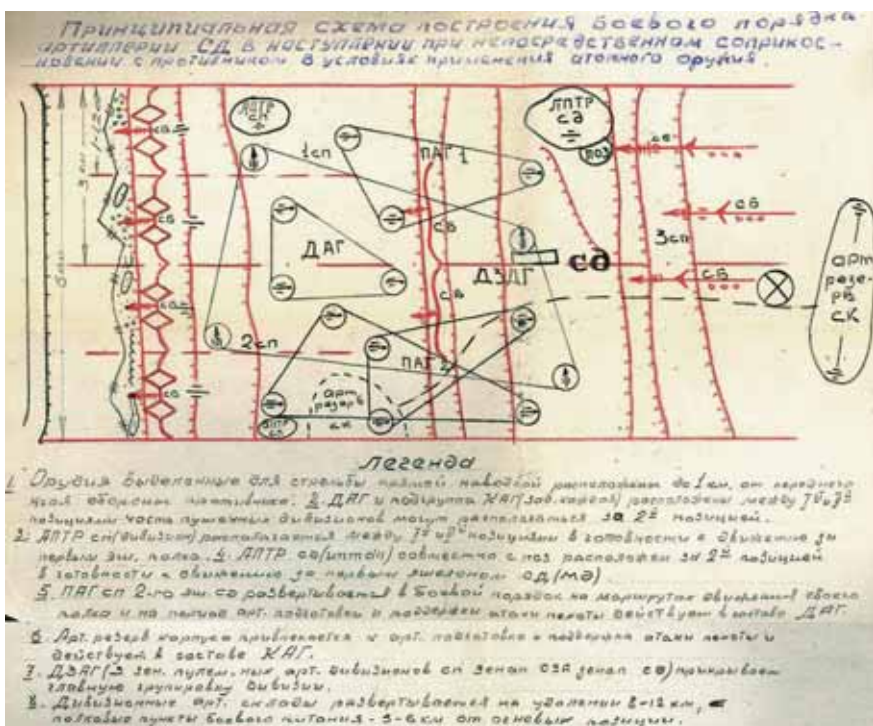 Принципиальная схема построения боевого порядка
артиллерии СД в наступлении при непосредственном соприкос-
новении с противником в условиях применения атомного оружия.
ЛПТР
СП
ЛПТР
СД
ПОЗ
1сп
ПАГ 1
св
св
св
св
3 км
1-1,2 км
6 км
ДАГ
ДЗАГ
сд
3сп
св
св
св
св
св
2сп
ПАГ 2
арт
резерв
ск
арт
резе-
рв
ск
Легенда
1. Орудия выделенные для стрельбы прямой наводкой расположены до 1 км, от переднего
края обороны противника. 2. ДАГ и подгруппа КАГ расположены между
позициями часть пушечных дивизионов могут располагаться за 2й позицией.
3. ЛПТР сп (дивизион) располагается между позициями в готовности к движению за
первым эш. полка. 4. ЛПТР сд (иптдн) совместно с поз расположен за 2й позицией
в готовности к движению за первым эшелоном СД (МД)
5. ПАГ сп 2-го эш. сд развертывается в боевой порядок на маршрутах движения своего
полка и на период арт. подготовки и поддержки атаки пехоты действует в составе ДАГ.
6. Арт. резерв корпуса привлекается к арт. подготовке и поддержке атаки пехоты и
действует в составе КАГ.
7. ДЗАГ (3 зен. арт. дивизионов сп зенап сд) прикрывает
главную групировку дивизии.
8. Дивизионные арт. склады развертываются на удалении 8-12 км,
полковые пункты боевого питания - 5-6 км от огневых позиций.